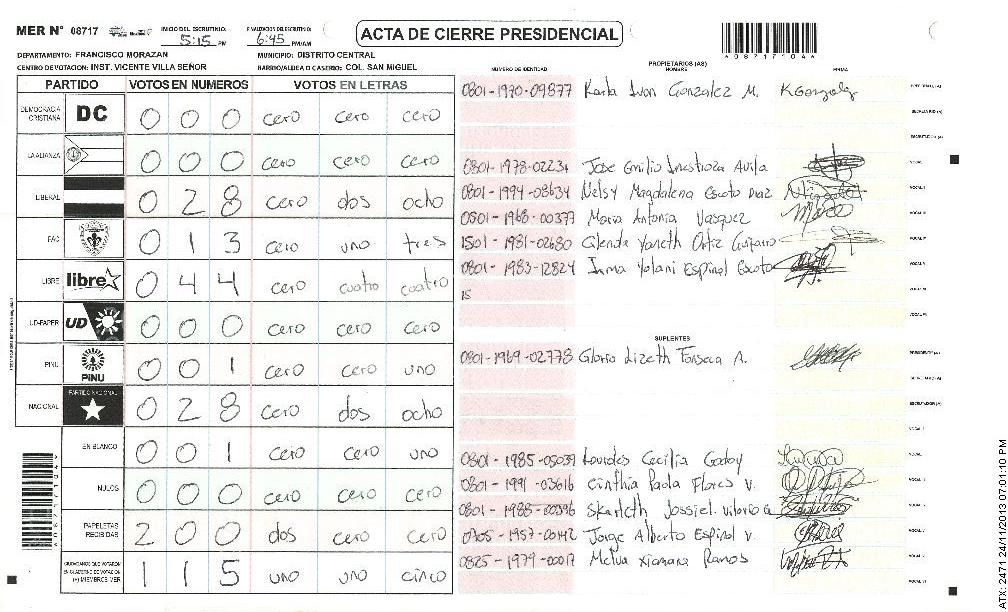 MER N° 08717 INICIO DEL ESCRUTINIO: 5:15 PM FINALIZACION DEL ESCRUTINIO: 6:45 PM/AM ACTA DE CIERRE PRESIDENCIAL
DEPARTAMENTO: FRANCISCO MORAZAN MUNICIPIO: DISTRITO CENTRAL
CENTRO DE VOTACION: INST. VICENTE VILLA SEÑOR BARRIO/ALDEA O CASERIO: COL. SAN MIGUEL
PARTIDO VOTOS EN NUMEROS VOTOS EN LETRAS
DEMOCRACIA CRISTIANA DC 0 0 0 cero cero cero
LA ALIANZA 0 0 0 cero cero cero
LIBERAL 0 2 8 cero dos ocho
PAC 0 1 3 cero uno tres
LIBRE libre 0 4 4 cero cuatro cuatro
UD-FAPER UD 0 0 0 cero cero cero
PINU PINU 0 0 1 cero cero uno
NACIONAL PARTIDO NACIONAL 0 2 8 cero dos ocho
EN BLANCO 0 0 1 cero cero uno
NULOS 0 0 0 cero cero cero
PAPELETAS RECIBIDAS 2 0 0 dos cero cero
CIUDADANOS QUE VOTARON EN CUADERNO DE VOTACION (+) MIEMBROS MER 1 1 5 uno uno cinco
PROPIETARIOS (AS)
NUMERO DE IDENTIDAD NOMBRE FIRMA
0801-1970-09877 Karla Ivon Gonzalez M. KGonzalez PRESIDENTE (A)
SECRETARIO (A)
ESCRUTADOR (A)
0801-1978-02234 Jose Emilio Inestroza Avila VOCAL I
0801-1994-08634 Nelsy Magdalena Escoto Diaz VOCAL II
0801-1968-00377 Maria Antonia Vasquez VOCAL III
1501-1981-02680 Glenda Yaneth Ortiz VOCAL IV
0801-1983-12824 Irma Yolani Espinal Escoto VOCAL V
15 VOCAL VI
SUPLENTES
0801-1969-02778 Gloria Lizeth Fonseca A. PRESIDENTE (A)
SECRETARIO (A)
ESCRUTADOR (A)
0801-1985-05039 Lourdes Cecilia Godoy
0801-1991-03616 Cinthia Paola Flores V.
0801-1988-00396 Skarleth Jossiel
1957-00142 Jorge Alberto Espinal V.
0825-1979-00017 Xiomara Ramos
A08717104A
ATX: 2471 24/11/2013 07:01:10 PM